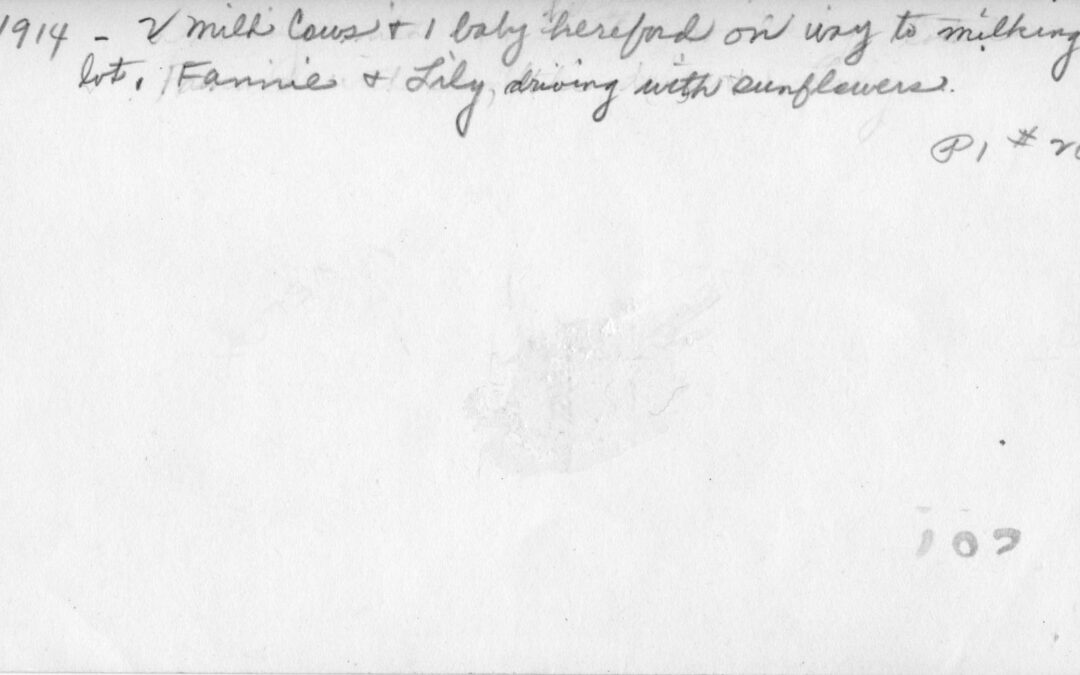 1914 - 2 milk Cows + 1 baby hereford on way to milking
lot. Fannie + Lily driving with sunflowers.
P1 #